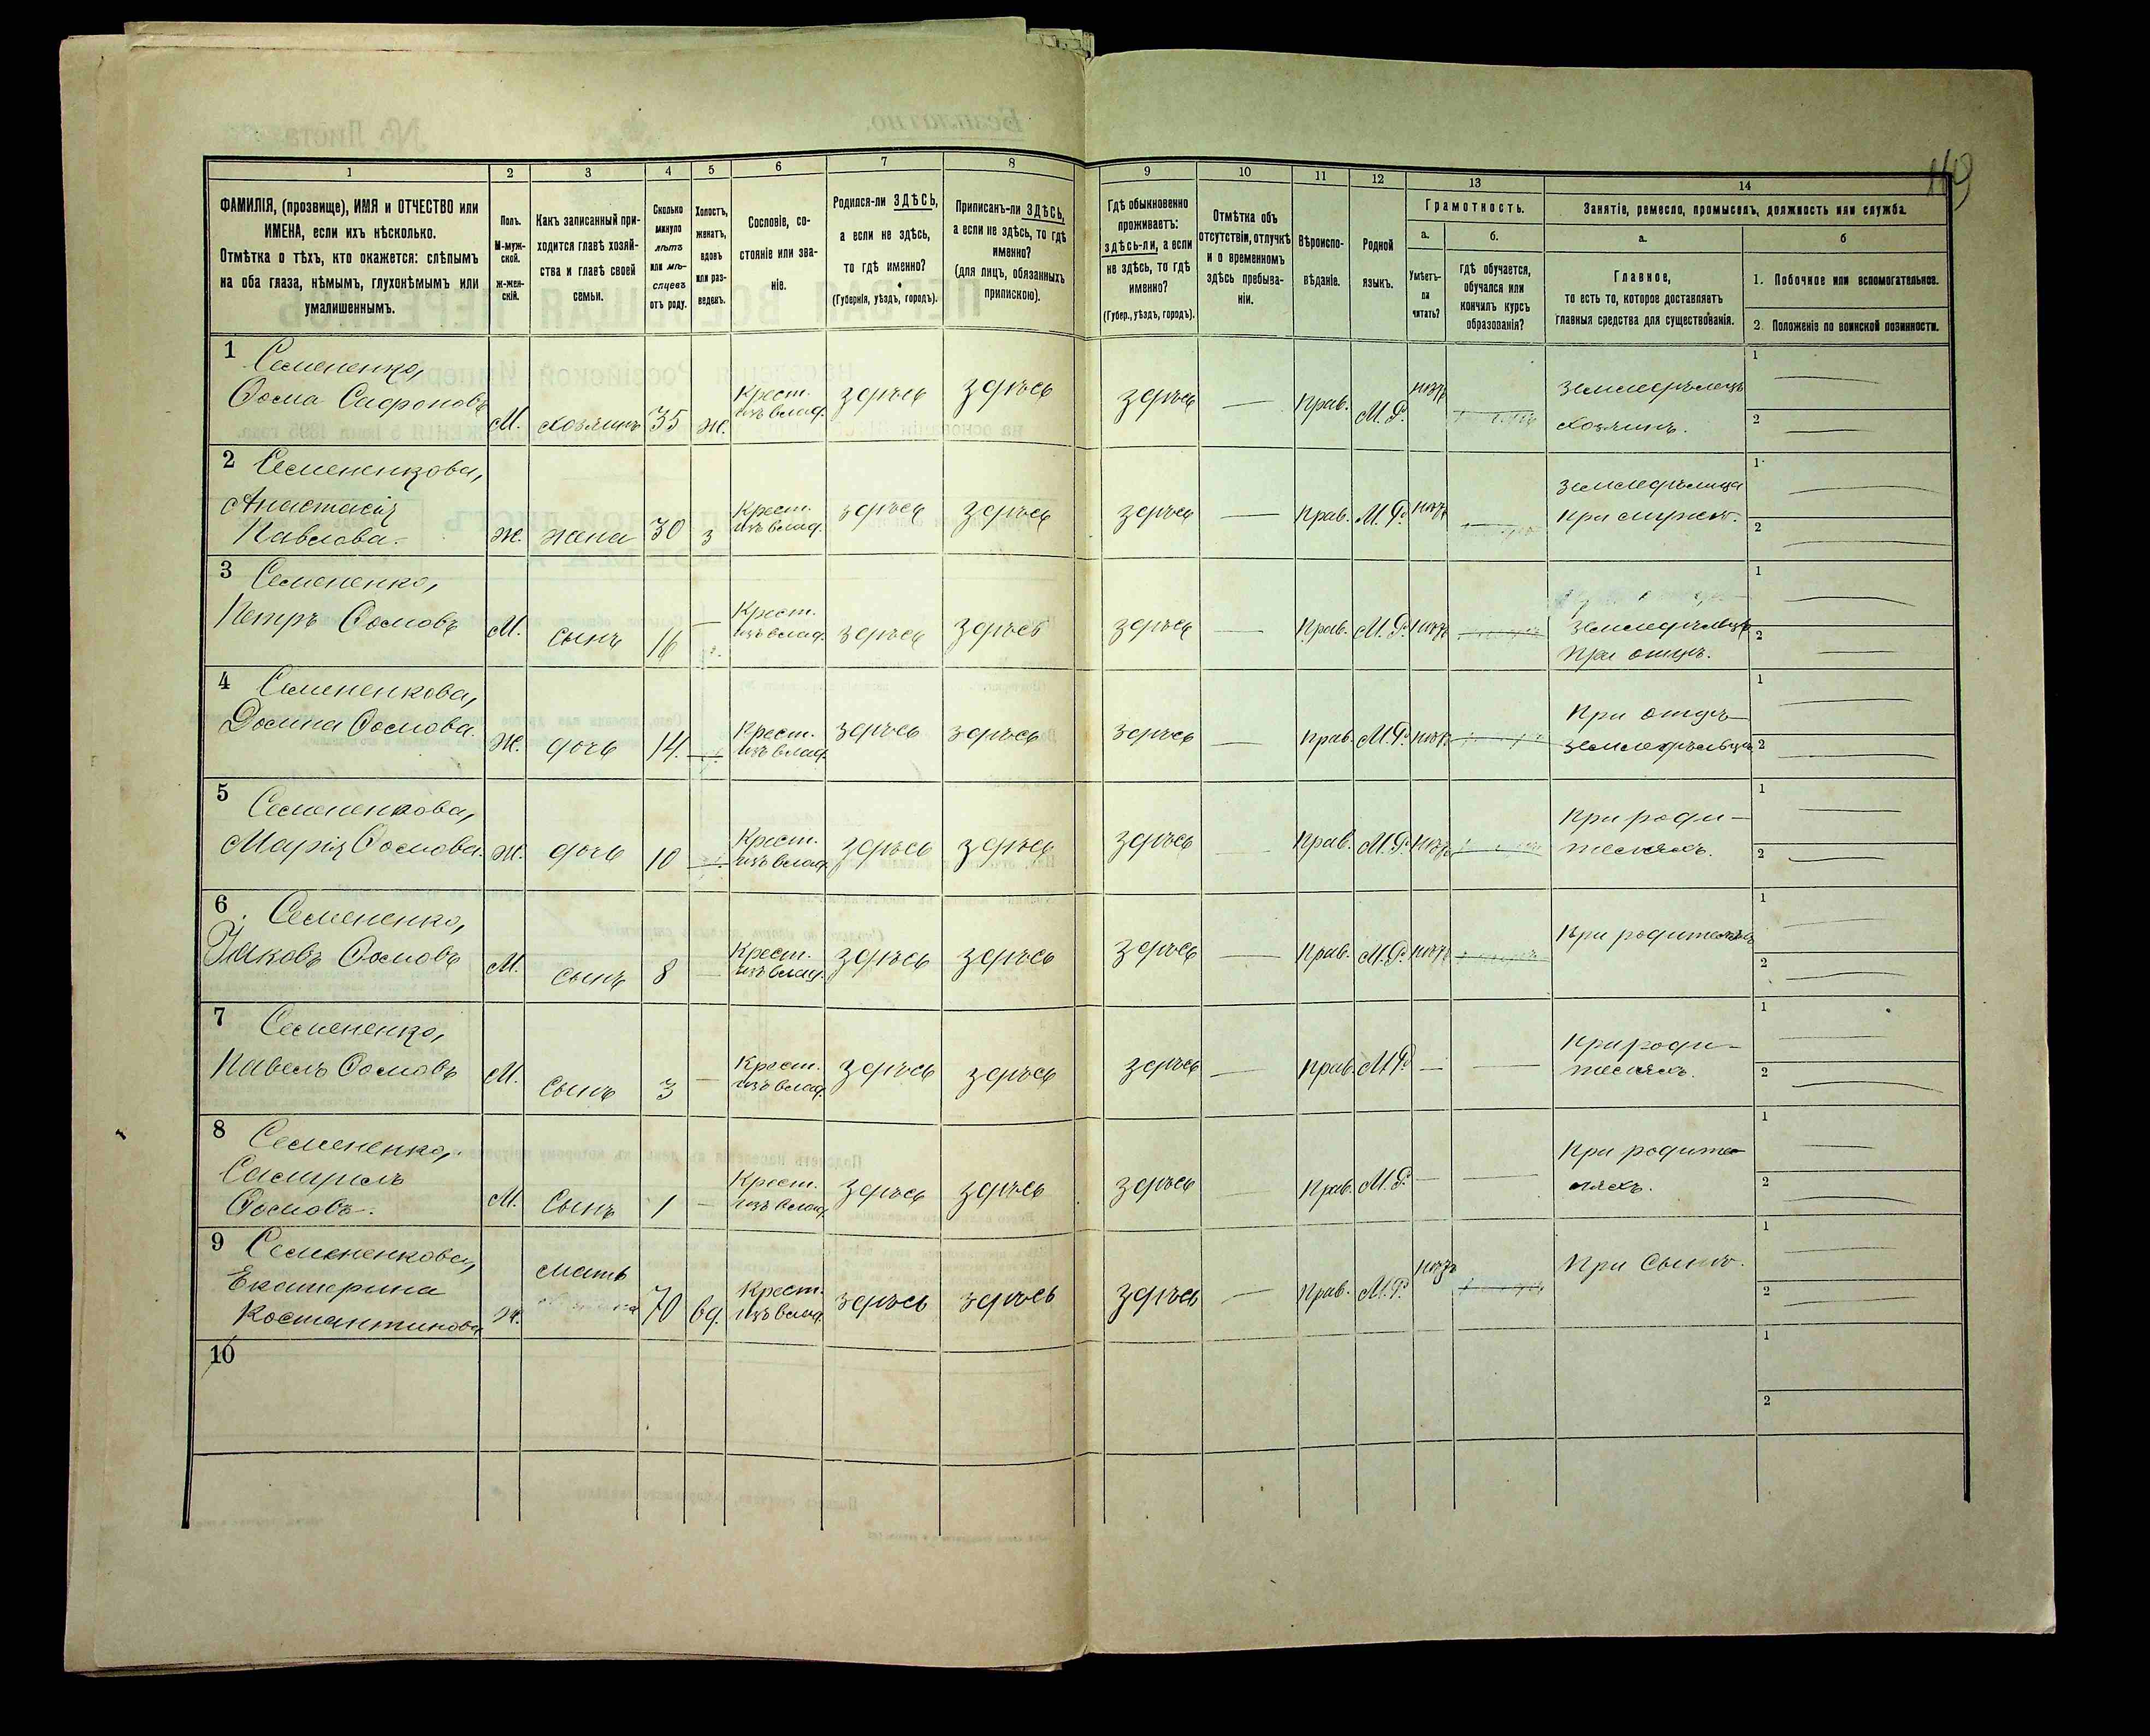 119
1
2
3
4
5
6
7
8
9
10
11
12
13
14
ФАМИЛІЯ, (прозвище), ИМЯ и ОТЧЕСТВО или
ИМЕНА, если ихъ нѣсколько.
Отмѣтка о тѣхъ, кто окажется: слѣпымъ
на оба глаза, нѣмымъ, глухонѣмымъ или
умалишеннымъ.
Полъ.
М-муж-
ской.
Ж-жен-
скій.
Какъ записанный при-
ходится главѣ хозяй-
ства и главѣ своей
семьи.
Сколько
минуло
лѣтъ
или мѣ-
сяцевъ
отъ роду.
Холостъ,
женатъ,
вдовъ
или раз-
веденъ.
Сословіе, со-
стояніе или зва-
ніе.
Родился-ли ЗДѢСЬ,
а если не здѣсь,
то гдѣ именно?
(Губернія, уѣздъ, городъ).
Приписанъ-ли ЗДѢСЬ,
а если не здѣсь, то гдѣ
именно?
(для лицъ, обязанныхъ
припискою).
Гдѣ обыкновенно
проживаетъ:
здѣсь-ли, а если
не здѣсь, то гдѣ
именно?
(Губер., уѣздъ, городъ).
Отмѣтка объ
отсутствіи, отлучкѣ
и о временномъ
здѣсь пребыва-
ніи.
Вѣроиспо-
вѣданіе.
Родной
языкъ.
Грамотность.
а.
б.
Умѣетъ-
ли
читать?
гдѣ обучается,
обучался или
кончилъ курсъ
образованія?
Занятіе, ремесло, промыселъ, должность или служба.
а.
б
Главное,
то есть то, которое доставляетъ
главныя средства для существованія.
1. Побочное или вспомогательное.
2. Положеніе по воинской повинности.
1 Семененко,
Фома Сафроновъ
М. хозяинъ 35 ж. Крест. изъ влад. здѣсь здѣсь здѣсь — Прав. М.Р. нѣтъ
земледѣлецъ
хозяинъ.
1
2
2 Семененкова,
Анастасія
Павлова.
Ж. жена 30 з Крест. изъ влад. здѣсь здѣсь здѣсь — Прав. М.Р. нѣтъ
земледѣлица
при мужѣ.
1
2
3 Семененко,
Петръ Фомовъ
М. сынъ 16 — Крест. изъ влад. здѣсь здѣсь здѣсь — Прав. М.Р. нѣтъ
земледѣльцѣ
при отцѣ.
1
2
4 Семененкова,
Домна Фомова.
Ж. дочь 14. — Крест. изъ влад. здѣсь здѣсь здѣсь — Прав. М.Р. нѣтъ
При отцѣ—
земледѣльцѣ
1
2
5 Семененкова,
Марія Фомова.
Ж. дочь 10 — Крест. изъ влад. здѣсь здѣсь здѣсь — Прав. М.Р. нѣтъ
При роди—
теляхъ.
1
2
6 Семененко,
Яковъ Фомовъ
М. сынъ 8 — Крест. изъ влад. здѣсь здѣсь здѣсь — Прав. М.Р. нѣтъ
При родителяхъ
1
2
7 Семененко,
Павелъ Фомовъ
М. сынъ 3 — Крест. изъ влад. здѣсь здѣсь здѣсь — Прав. М.Р. — —
При роди—
теляхъ.
1
2
8 Семененко,
Фомовъ.
М. Сынъ 1 — Крест. изъ влад. здѣсь здѣсь здѣсь — Прав. М.Р. — —
При родите—
ляхъ.
1
2
9 Семененкова,
Екатерина
Костантинова
ж. мать 70 вд. Крест. изъ влад. здѣсь здѣсь здѣсь — Прав. М.Р. нѣтъ
При сынѣ.
1
2
10
1
2